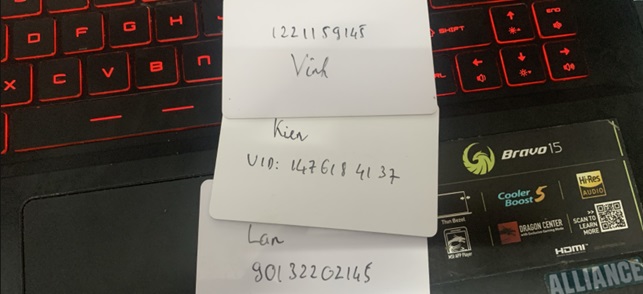 1221159145
Vinh
Kien
UID: 1476184137
Lan
90132202145
SHIFT
END
D
F
G
H
X
C
V
B
N
CTRL
Bravo 15
Cooler Boost 5
Hi-Res
AUDIO
Thin Bezel
DRAGON CENTER
SCAN TO
LEARN
MORE
HDMI
ALLIANCE